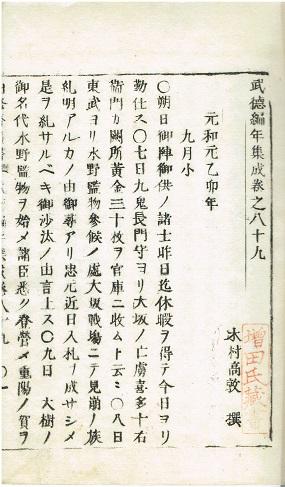 武德編年集成卷之八十九
木村高敦 撰
增田氏藏書
元和元乙卯年
九月小
〇朔日御陣御供ノ諸士昨日迄休暇ヲ得テ今日ヨリ
勤仕ス〇七日九鬼長門守ヨリ大坂ノ亡虜喜多十右
衞門カ闕所黃金三十枚ヲ官庫ニ收ムト云ミ〇八日
東武ヨリ水野監物參候ノ處大坂戰場ニテ見崩ノ族
糺明アルカノ由御尋アリ忠元近日入札ヲ成サシメ
是ヲ糺サルベキ御沙汰ノ由言上ス〇九日 大樹ノ
御名代水野監物ヲ始メ諸臣悉ク登營メ重陽ノ賀ヲ